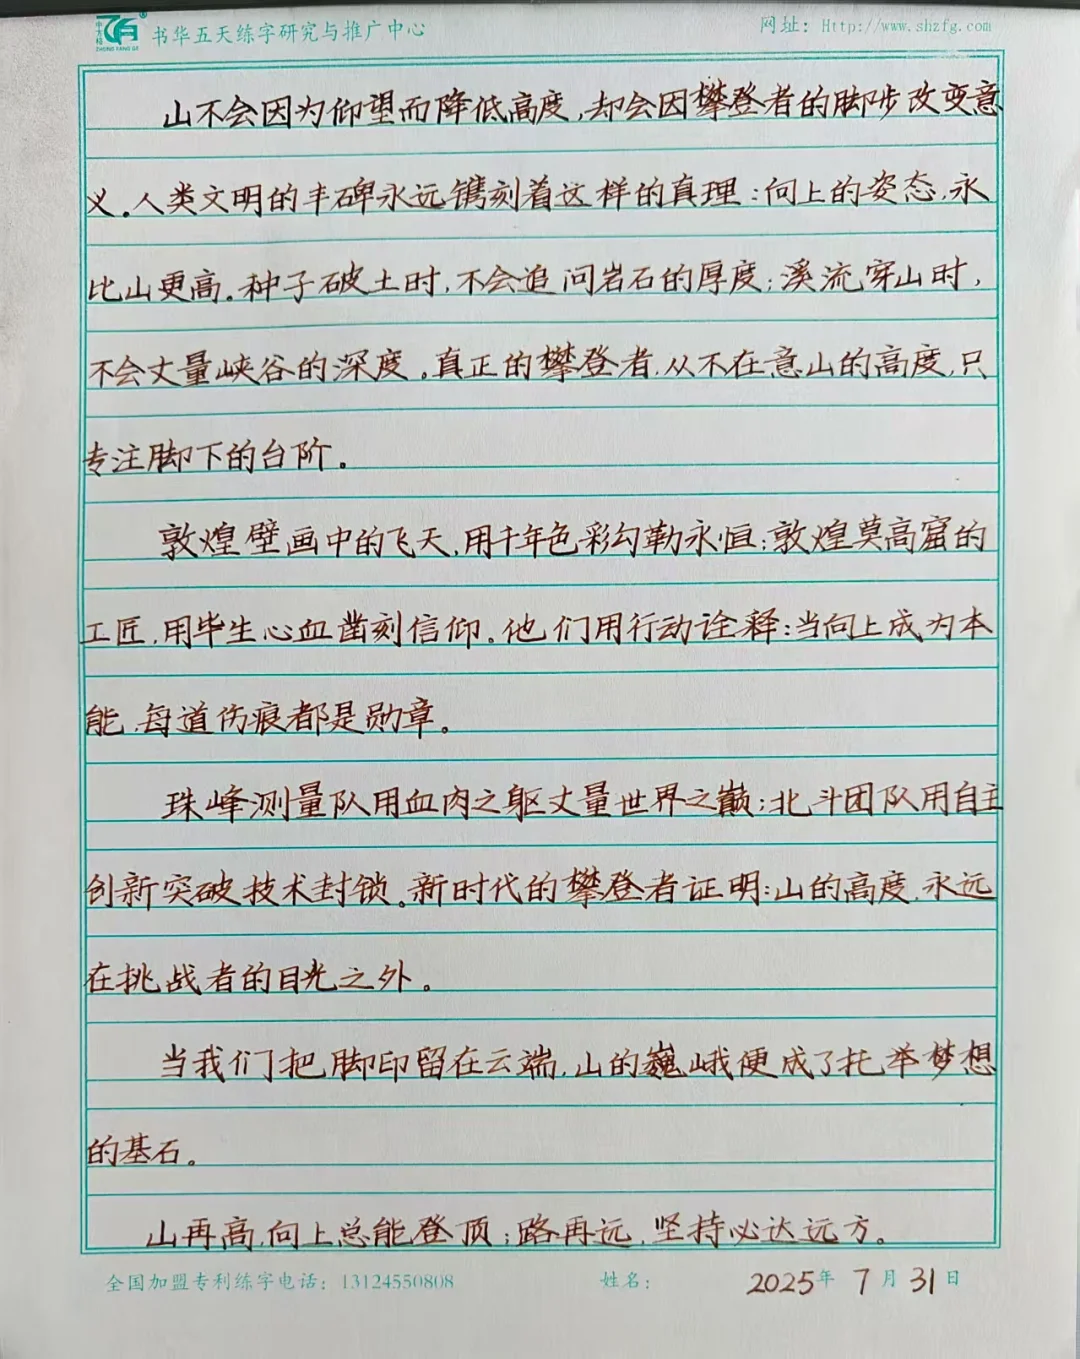 书华五天练字研究与推广中心
网址：Http://www.shzfg.com
山不会因为仰望而降低高度，却会因攀登者的脚步改变意
义。人类文明的丰碑永远镌刻着这样的真理：向上的姿态，永
比山更高。种子破土时，不会追问岩石的厚度；溪流穿山时，
不会丈量峡谷的深度。真正的攀登者，从不在意山的高度，只
专注脚下的台阶。
敦煌壁画中的飞天，用千年色彩勾勒永恒；敦煌莫高窟的
工匠，用毕生心血凿刻信仰。他们用行动诠释：当向上成为本
能，每道伤痕都是勋章。
珠峰测量队用血肉之躯丈量世界之巅；北斗团队用自主
创新突破技术封锁。新时代的攀登者证明：山的高度，永远
在挑战者的目光之外。
当我们把脚印留在云端，山的巍峨便成了托举梦想
的基石。
山再高，向上总能登顶；路再远，坚持必达远方。
全国加盟专利练字电话：13124550808 姓名： 2025年 7月 31日